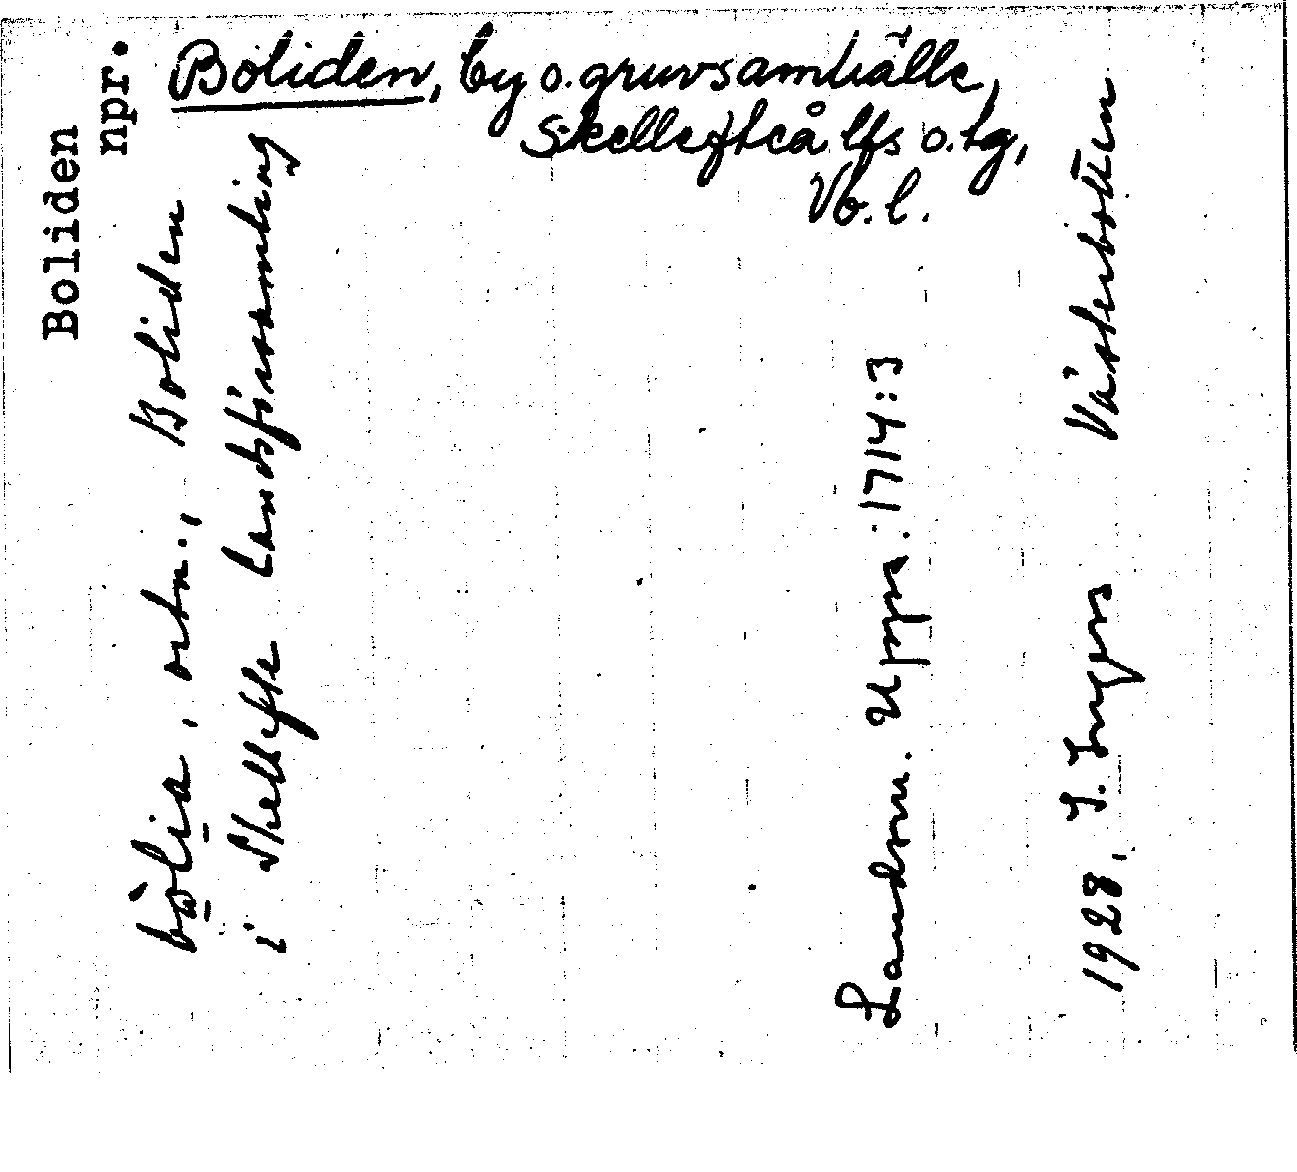 Boliden, by o. gruvsamhälle,
Skellefteå lfs o. tg,
Vb. l.
Boliden
npr.
bölia, ortn., Boliden
i Skellefte landsförsamling
Landsm. Upps. 1714:3
1928, Västerbotten